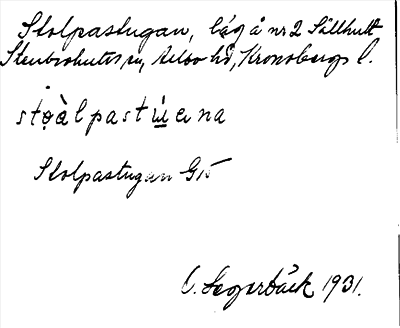 Stolpastugan, låg å nr 2 Sällhult
Stenbrohults sn, Allbo hd, Kronobergs l.
stọ̀àlpastú̲ɐna
Stolpastugan G15
C. Segerbäck 1931.